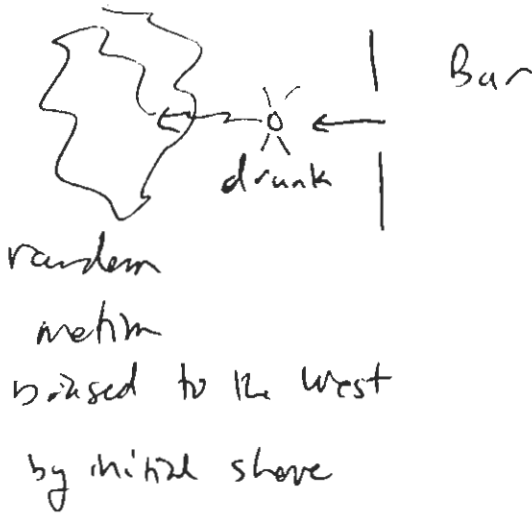 Bar
drunk
random
motion
biased to the west
by initial shove